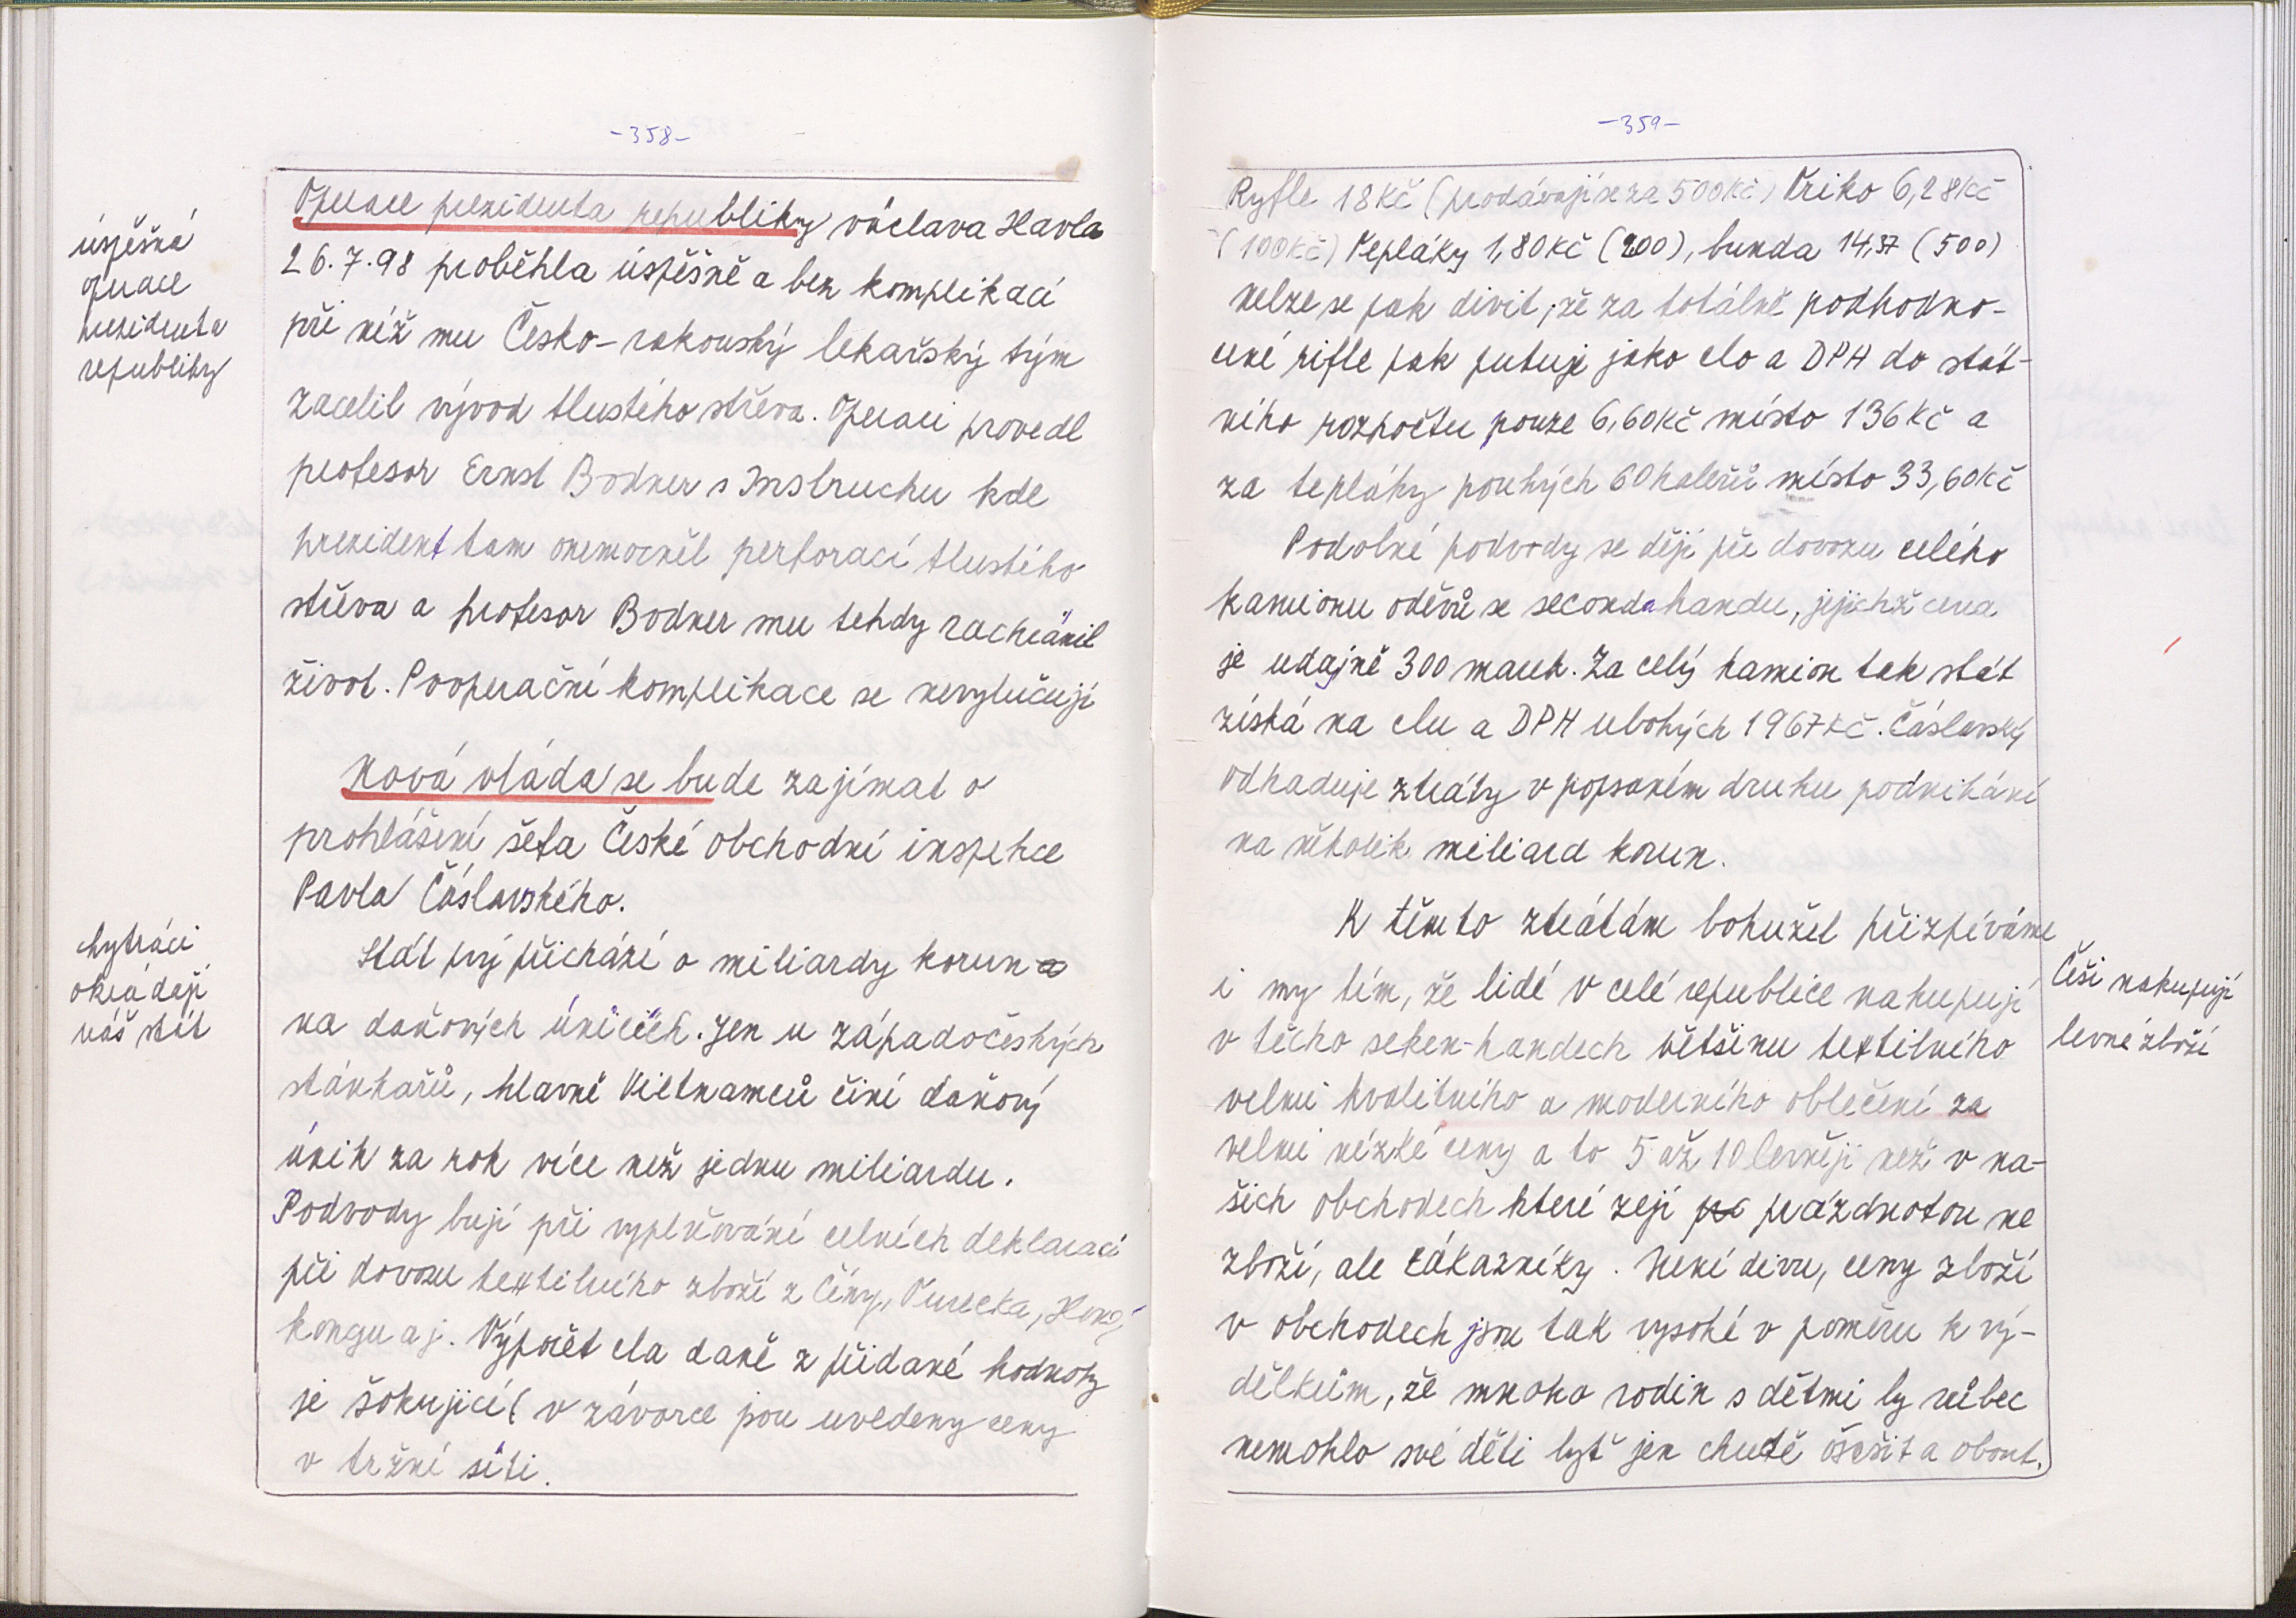 -358-
úspěšná
operace
presidenta
republiky
Operace prezidenta republiky václava Havla
26.7.98 proběhla úspěšně a bez komplikací
při níž mu Česko-rakouský lekařský tým
zacelil vývod tlustého střeva. Operaci provedl
profesor Ernst Bodner s Insbruchu kde
prezident tam onemocněl perforací tlustého
střeva a profesor Bodner mu tehdy zachránil
život. Pooperační komplikace se nevylučují
Nová vláda se bude zajímat o
prohlášení šéfa České obchodní inspekce
Pavla Čáslavského.
chytráci
okrádají
náš stát
Stát prý přichází o miliardy korun
na daňových únicích. Jen u západočeských
stánkařů, hlavně Vietnamců činí daňový
únik za rok více než jednu miliardu.
Podvody bují při vyplňování celních deklarací
při dovozu textilního zboží z Číny, Turecka, Hong
kongu a j. Výpočet cla daně z přidané hodnoty
je šokující ( v závorce jsou uvedeny ceny
v tržní síti.
-359-
Ryfle 18 Kč (prodávají se za 500 Kč) Triko 6,28 Kč
(100 Kč) Tepláky 1,80 Kč (200), bunda 14,37 (500)
nelze se pak divit, že za totálně podhodno-
cené rifle pak putuje jako clo a DPH do stát-
ního rozpočtu pouze 6,60 Kč místo 136 Kč a
za tepláky pouhých 60 haleřů místo 33,60 Kč
Podobné podvody se dějí při dovozu celého
kamionu oděvů se secondahandu, jejichž cena
je udajně 300 marek. Za celý kamion tak stát
získá na clu a DPH ubohých 1967 Kč. Čáslavský
odhaduje ztráty v popsaném druhu podnikání
na několik miliard korun.
K těmto ztrátám bohužel přizpíváme
i my tím, že lidé v celé republice nakupují
v těcho seken-handech většinu textilního
velmi kvalitního a moderního oblečení za
velmi nízké ceny a to 5 až 10 levněji než v na-
šich obchodech které zejí prázdnotou ne
zboží, ale zákazníky. Není divu, ceny zboží
v obchodech jsou tak vysoké v poměru k vý-
dělkům, že mnoho rodin s dětmi by vůbec
nemohlo své děti byť jen chudě ošatit a obout.
Češi nakupují
levné zboží